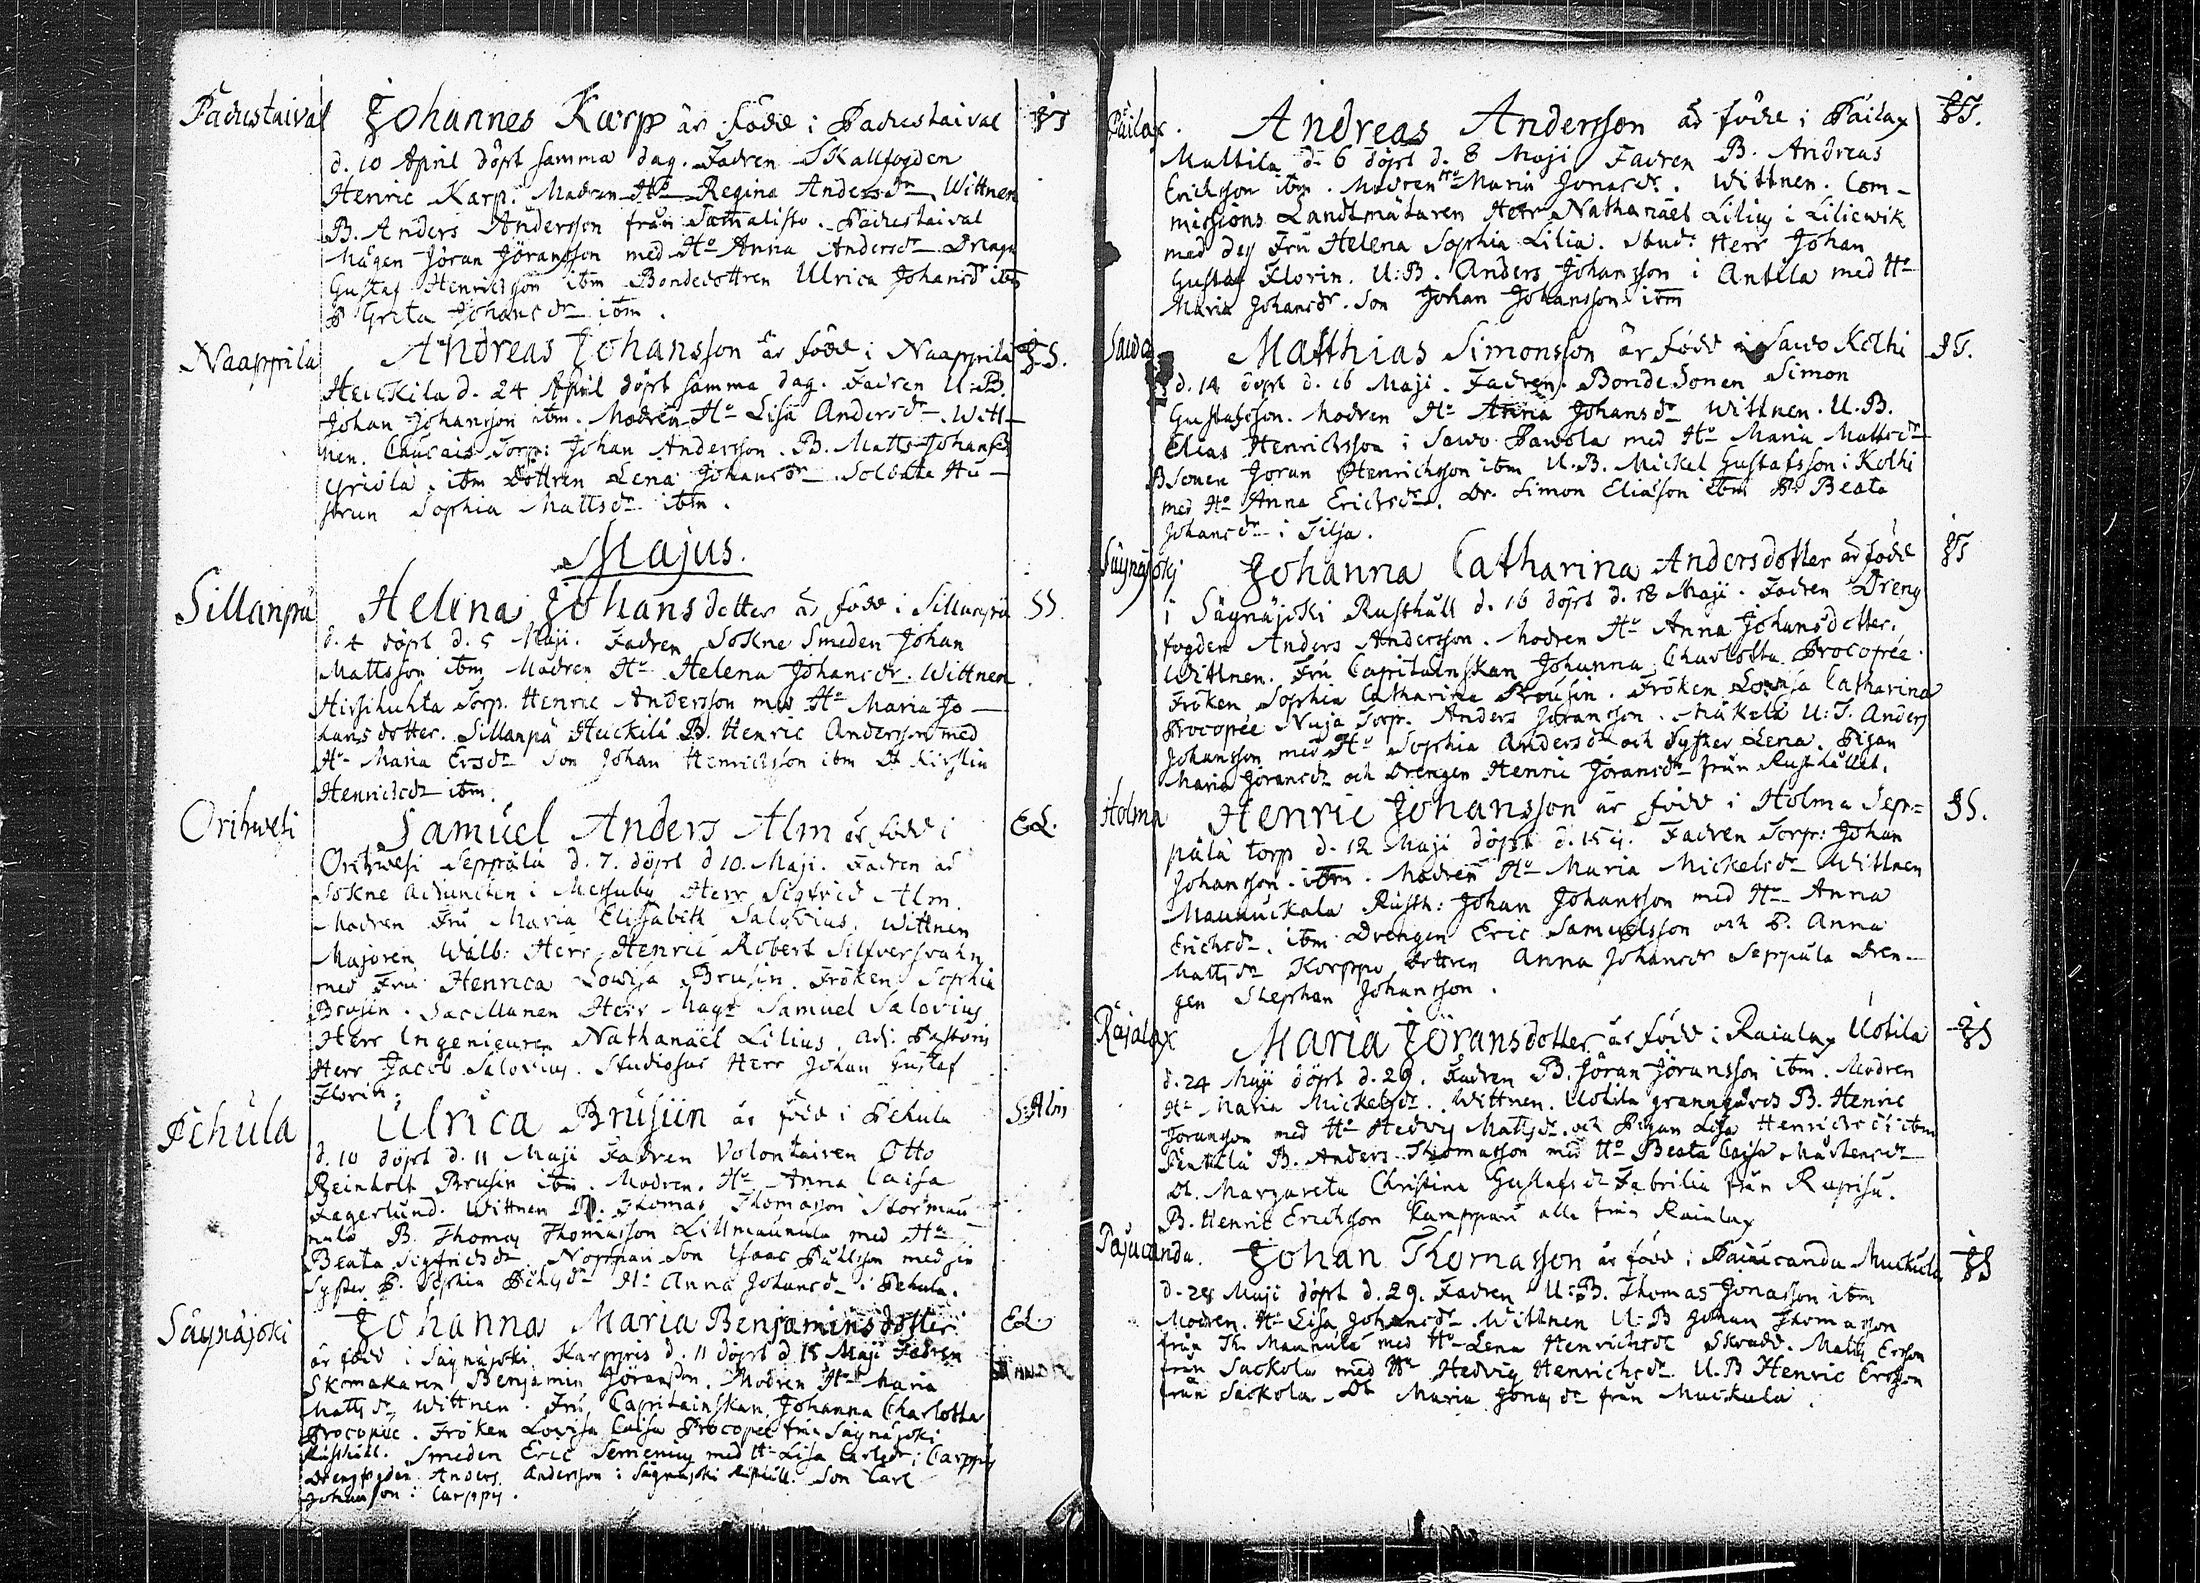 Padustaival Johannes Karp är född i Padustaival
d. 10 April döpt samma dag. Fadren Skallfogden
Henric Karp. Modren Ho Regina Andersdr Wittnen
B. Anders Andersson från Padustaival
Mågen Jöran Jöransson med Ho Anna Andersdr Dreng
Gustaf Henricsson ibm Bondedottren Ulrica Johansd ibm
P Greta Johansdr ibm.
Naappila Andreas Johansson är född i Naappila JS.
Heickila d. 24 April döpt samma dag. Fadren U.B.
Johan Johansson ibm. Modren Ho Lisa Andersdr. Witt-
nen. Torp: Johan Andersson. B. Matts Johanss
Yrjölä. ibm Dottren Lena Johansdr. Soldate Hu-
strun Sophia Mattsdr ibm.
Majus.
Sillanpä Helena Johansdotter är född i Sillanpä JS.
d. 4 döpt d. 5 Maji. Fadren Sokne Smeden Johan
Mattsson ibm Modren Ho Helena Johansdr. Wittnen
Hirsihuhta Torp. Henric Andersson med Ho Maria Jo-
hansdotter. Sillanpä Heickilä B. Henric Andersson med
Ho Maria Ersdr Son Johan Henricsson ibm Dr Kirstin
Henricsdr ibm.
Orihwesi Samuel Anders Alm är född i EL.
Orihwesi Seppälä d. 7. döpt d 10. Maji. Fadren är
Sokne Adjuncten i Messuby Herr Sigfrid Alm.
Modren Fru Maria Elisabeth Salovius. Wittnen
Majoren Wälb: Herr Henric Robert Silfversvahn
med Fru Henrica Lowisa Brusin. Fröken Sophia
Brusin. Sacellanen Herr Magr Samuel Salovius
Herr Ingenieuren Nathanaël Lilius. Adj. Pastoris
Herr Jacob Salovius. Studiosus Herr Johan Gustaf
Florin.
Pehula Ulrica Brusiin är född i Pehula S: Alm
d. 10 döpt d. 11 Maji Fadren Volontairen Otto
Reinholt Brusin ibm. Modren. Ho Anna Caisa
Fagerlund. Wittnen B. Thomas Thomasson Stormau-
nula B. Thomas Thomasson Lillmaunula med Ho
Beata Sigfridsdr. Noppari Son Isaac Påhlsson med sin
Syster P. Sophia Ho Anna Johansdr i Pehula.
Säynäjoki Johanna Maria Benjaminsdotter EL
är född i Säynäjoki Karppris d. 11 döpt d 15 Maji Fadren
Skomakaren Benjamin Jöransson. Modren Ho Maria
Mattsdr Wittnen. Fru Capitainskan Johanna Charlotta
Procopée. Fröken Lovisa Caisa Procopée från Säynäjoki
Rusthåll. Smeden Eric med Ho Lisa Carlsdr i Carppis
Drengfogden. Anders Andersson i Säynäjoki Rusthåll. Son Carl
Johansson i Carppis.
Päilax. Andreas Andersson är född i Päilax JS.
Mattila d. 6 döpt d. 8 Maji Fadren B. Andreas
Ericsson ibm. Modren Ho Maria Jonasdr. Wittnen. Com-
missions Landtmätaren Herr Nathanaël Lilius i Liliewik
med dess Fru Helena Sophia Lilia. Stud: Herr Johan
Gustaf Florin. U:B. Anders Johansson i Anttila med Ho
Maria Johansdr. Son Johan Johansson ibm
Sawo Matthias Simonsson är född i Sawo Kolhi JS.
d. 14 döpt d. 16 Maji. Fadren. Bonde Sonen Simon
Gustafsson. Modren Ho Anna Johansdr Wittnen. U.B.
Elias Henricsson i Sawo Pawola med Ho Maria Mattsdr
BSonen Jöran Henricsson ibm U.B. Mickel Gustafsson i Kolhi
med Ho Anna Ericsdr. Dr. Simon Eliasson ibm P. Beata
Johansdr i Silja.
Säynäjoki Johanna Catharina Andersdotter är född JS
i Säynäjoki Rusthåll d. 16 döpt d. 18 Maji. Fadren Dreng
fogden Anders Andersson. Modren Ho Anna Johansdotter.
Wittnen. Fru Capitainskan Johanna Charlotta Procopée.
Fröken Sophia Catharina Brousin. Fröken Lovisa Catharina
Procopée Torp. Anders Jöransson. Mäkelä U:T. Anders
Johansson med Ho Sophia Andersdr och Syster Lena. Pigan
Maria Jöransdr och Drengen Henric från Rusthållet.
Holma Henric Johansson är född i Holma Sep= JS.
pälä torp d. 12 Maji döpt d. 15 Fadren Torp: Johan
Johansson. ibm. Modren Ho Maria Mickelsdr Wittnen
Maunuckala Rusth: Johan Johansson med Ho Anna
Ericsdr. ibm Drengen Eric Samuelsson och P. Anna
Mattsdr Korppo Dottren Anna Johansdr Seppälä Dren-
gen Stephan Johansson.
Rajalax Maria Jöransdotter är född i Raialax Uotila JS
d. 24 Maji döpt d. 29. Fadren B. Jöran Jöransson ibm. Modren
Ho Maria Mickelsdr. Wittnen. Uotila granngårds B. Henric
Jöransson med Ho Hedvig Mattsdr. och Pigan Lisa Henricsdr ibm
Penttilä B. Anders Thomasson med Ho Beata Caisa Mårtensdr
Dr. Margareta Christina Gustafsdr Fabrilia från Rupisu.
B. Henric Ericsson Kamppari alla från Raialax
Pajucanda. Johan Thomasson är född i Paiucanda Muckula JS
d. 28 Maji döpt d. 29. Fadren U:B. Thomas Jonasson ibm
Modren. Ho Lisa Johansdr. Wittnen U:B Johan Thomasson
från Maunula med Ho Lena Henricsdr Matts Ersson
från Sackola med Ho Hedvig Henricsdr. U.B Henric Ersson
från Sackola Dr Maria Jonasdr från Muckula.